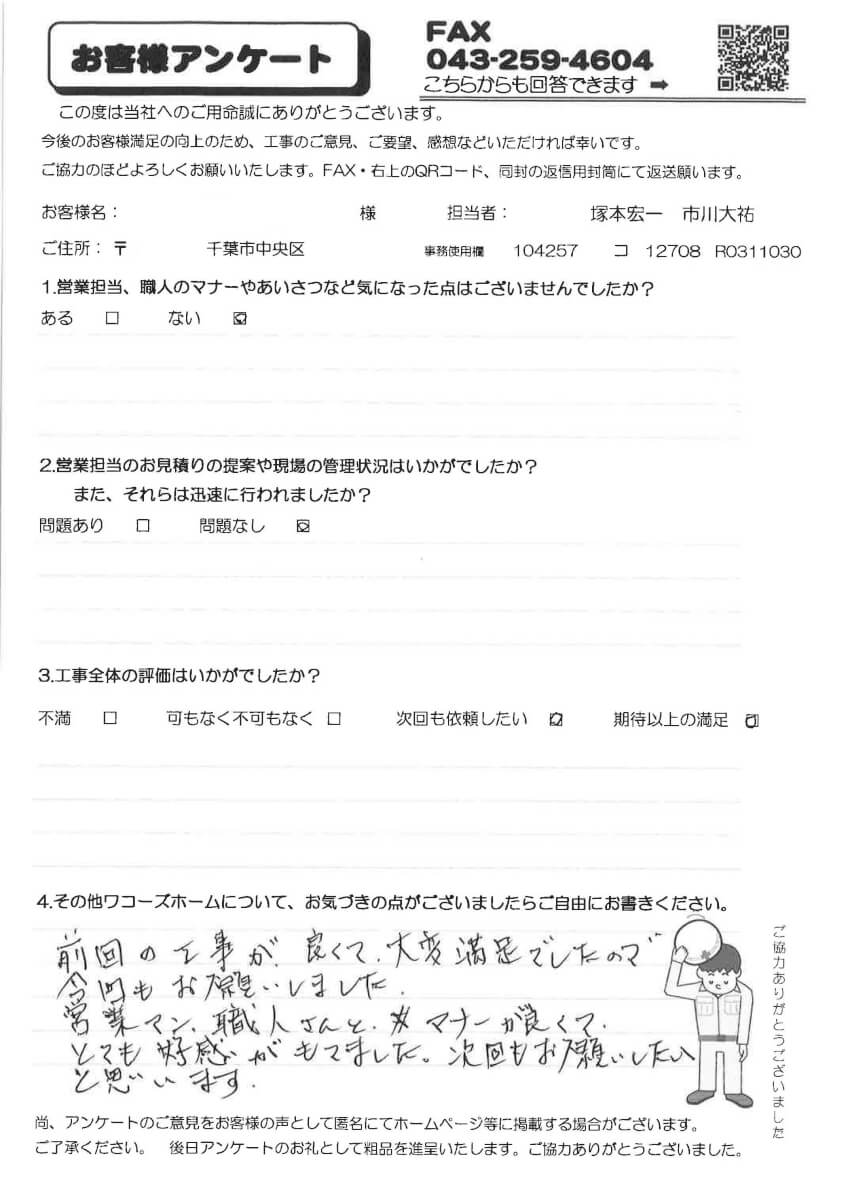 お客様アンケート
FAX
043-259-4604
こちらからも回答できます ➡
この度は当社へのご用命誠にありがとうございます。
今後のお客様満足の向上のため、工事のご意見、ご要望、感想などいただければ幸いです。
ご協力のほどよろしくお願いいたします。FAX・右上のQRコード、同封の返信用封筒にて返送願います。
お客様名： 様 担当者： 塚本宏一 市川大祐
ご住所：〒 千葉市中央区 事務使用欄 104257 コ 12708 R0311030
1.営業担当、職人のマナーやあいさつなど気になった点はございませんでしたか？
ある □ ない ☑
2.営業担当のお見積りの提案や現場の管理状況はいかがでしたか？
また、それらは迅速に行われましたか？
問題あり □ 問題なし ☑
3.工事全体の評価はいかがでしたか？
不満 □ 可もなく不可もなく □ 次回も依頼したい ☑ 期待以上の満足 ☑
4.その他ワコーズホームについて、お気づきの点がございましたらご自由にお書きください。
前回の工事が、良くて、大変満足でしたので
今回もお願いしました。
営業マン、職人さんと、マナーが良くて、
とても好感がもてました。次回もお願いしたい
と思います。
ご協力ありがとうございました
尚、アンケートのご意見をお客様の声として匿名にてホームページ等に掲載する場合がございます。
ご了承ください。 後日アンケートのお礼として粗品を進呈いたします。ご協力ありがとうございました。